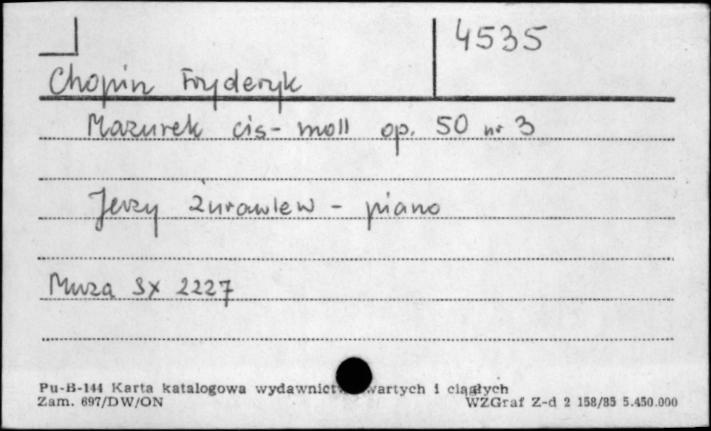 4535
Chopin Fryderyk
Mazurek cis-moll op. 50 nr 3
Jerzy Żurawlew - piano
Muza SX 2227
Pu-B-144 Karta katalogowa wartych i ciągłych
Zam. 697/DW/ON WZGraf Z-d 2 158/85 5.450.000